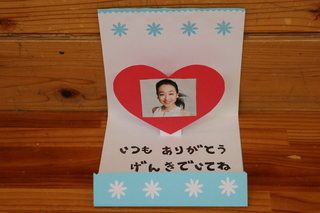 いつも ありがとう
げんきでいてね